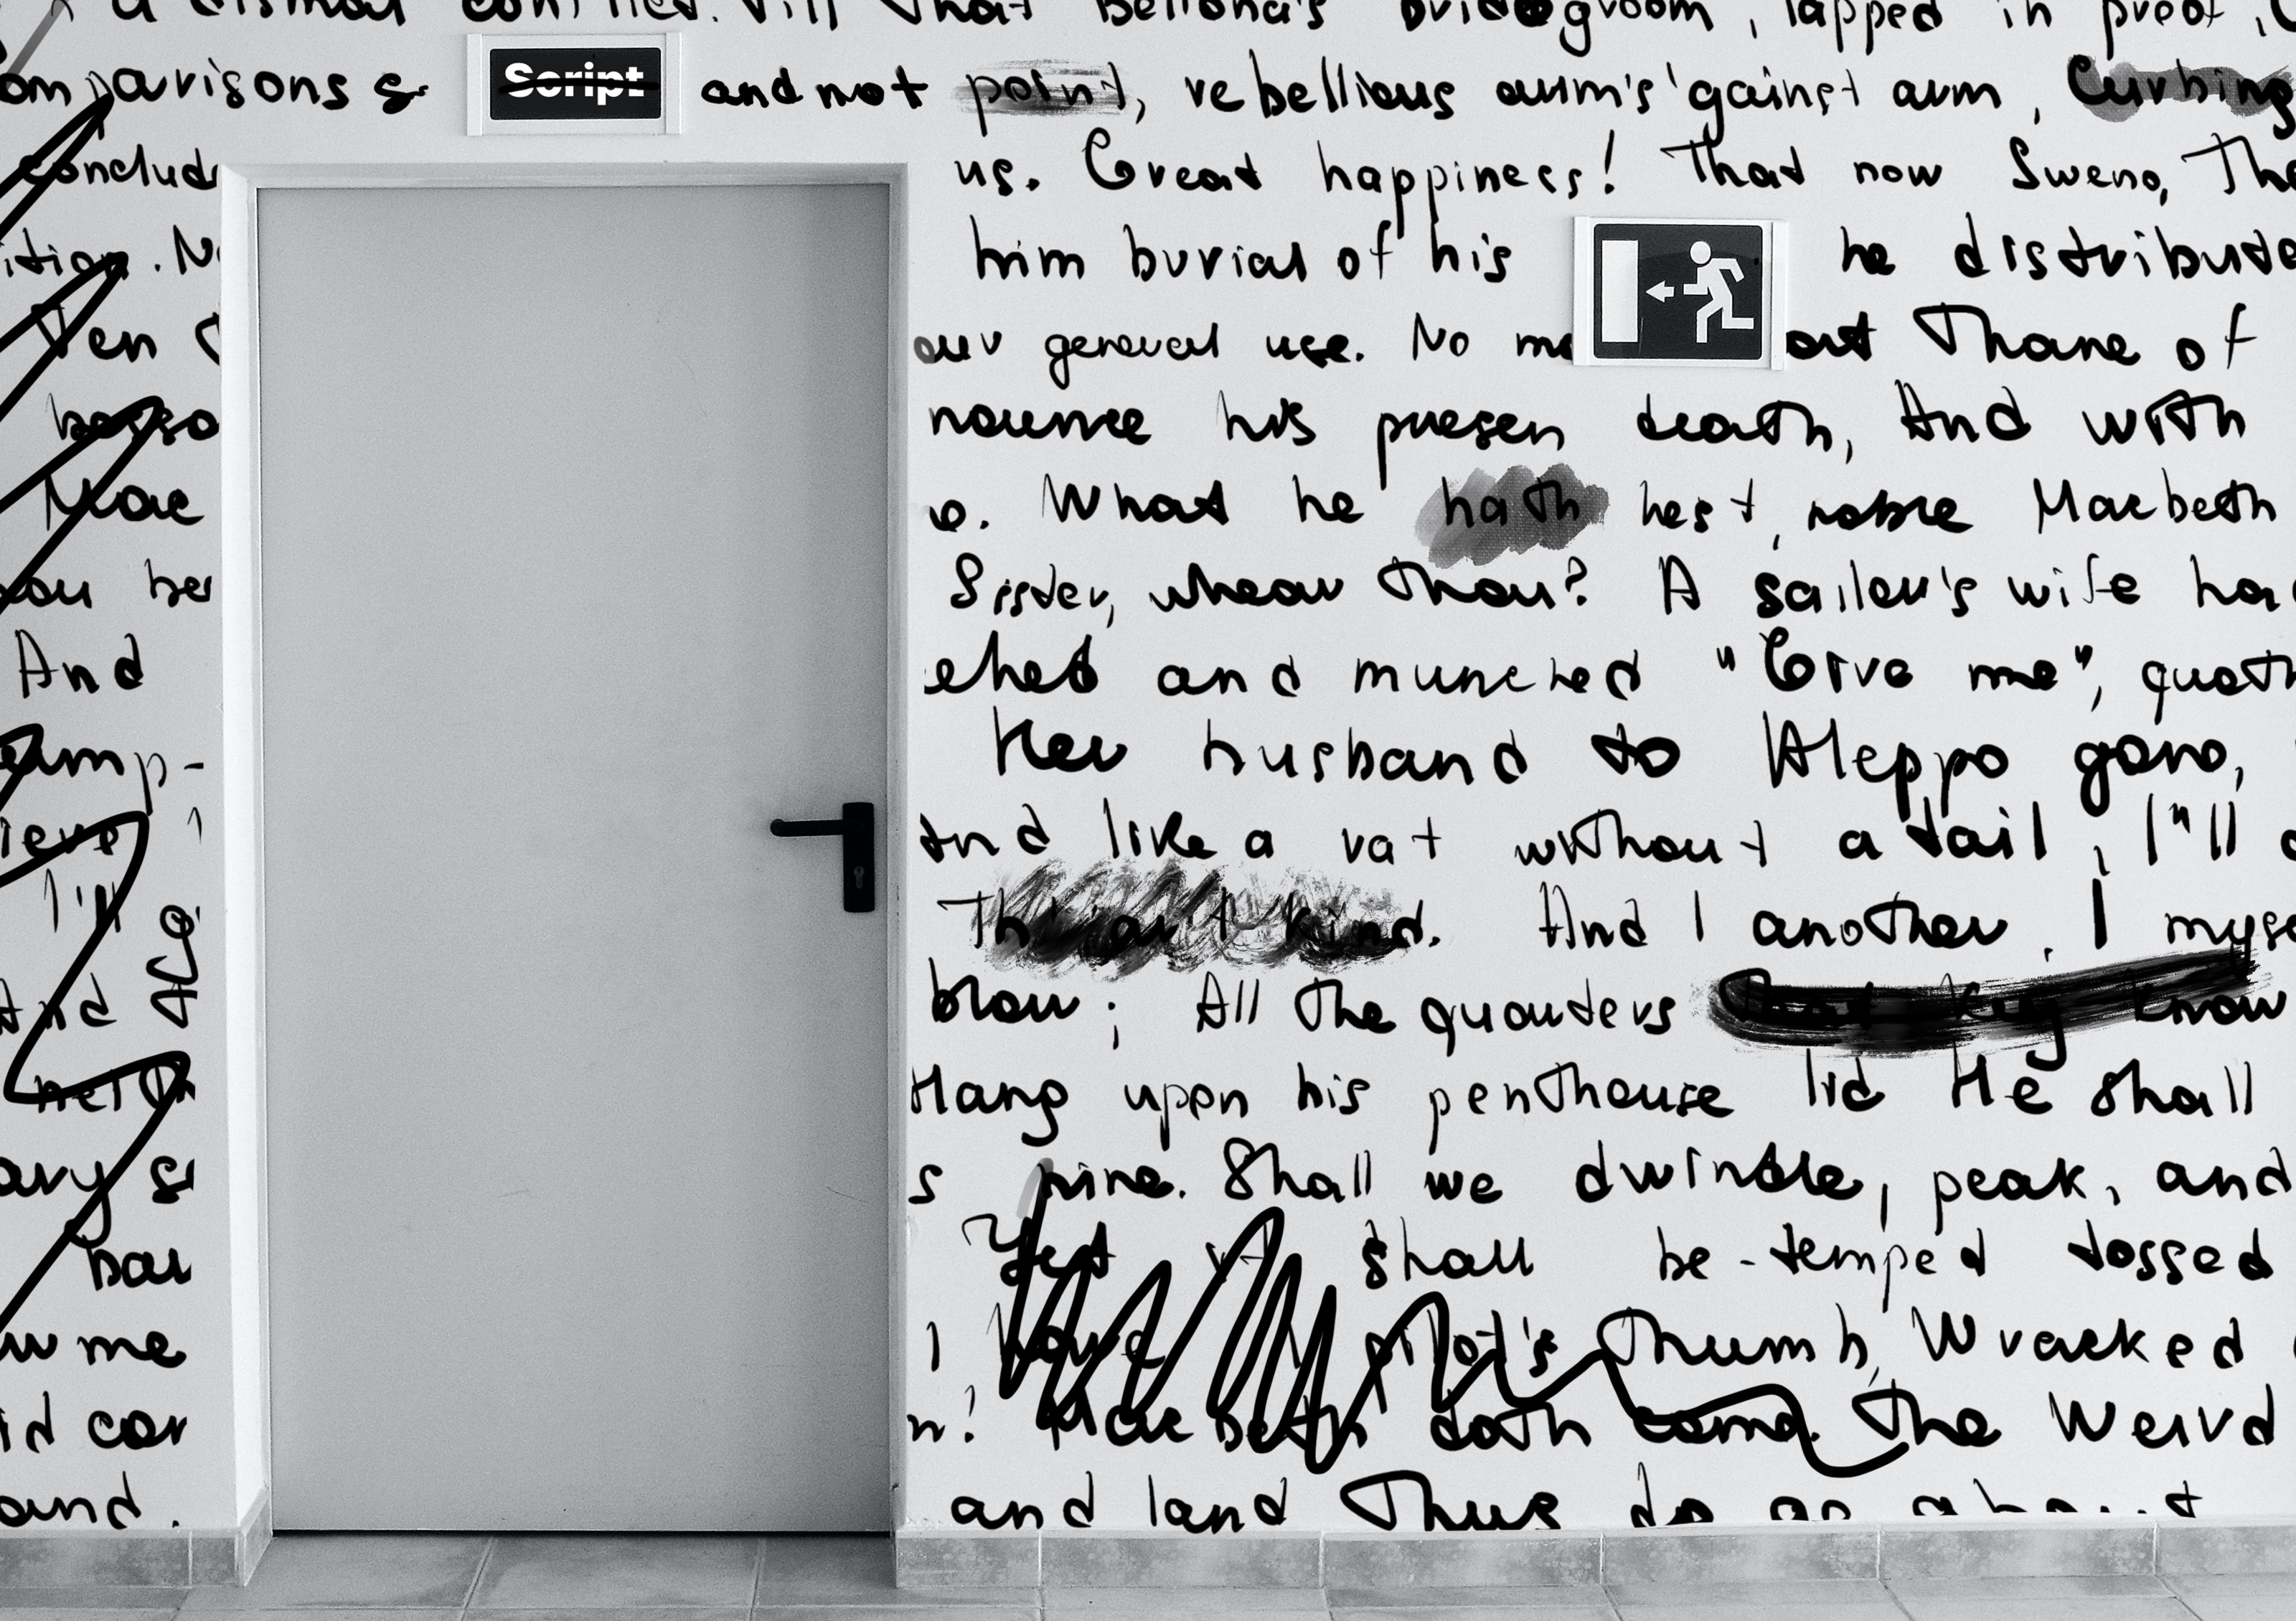 a dismal conflict. Till that Bellona's bridegroom, lapped in proof,
omparisons Script and not point, rebellious arm's 'gainst arm, Curbing
conclud us. Great happiness! That now Sweno, The
ition. him burial of his he distribute
Ten our general use. No mo at Thane of
bosso nounce his presen death, And with
Mac What he hath hest, noble Macbeth
ou her Sister, whear thou? A sailor's wife ha
And ched and munched "Give me", quoth
emp- Her husband to Aleppo gono,
ieve And like a rat without a tail, I"ll
I'll Th art kind. And I another. I myse
And blow; All the quarters that key know
neith Hang upon his penthouse lid He shall
ary s pine. Shall we dwindle, peak, and
Yest it shall be-temped tossed
w me I have pilot's thumb, Wracked
id cor Macbeth doth come. The Weird
and. and land Thus do go